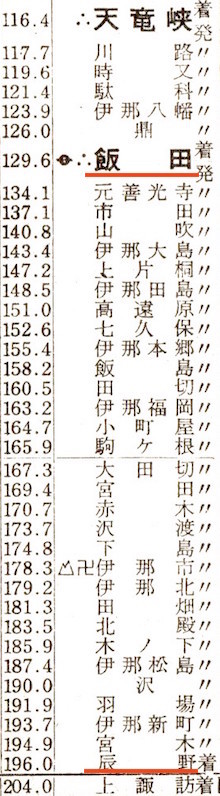 116.4 ∴天竜峡 着発
117.7 川路 〃
119.6 時又 〃
121.4 駄科 〃
123.9 伊那八幡 〃
126.0 鼎 〃
129.6 ∴飯田 着発
134.1 元善光寺 〃
137.1 市田 〃
140.8 山吹 〃
143.4 伊那大島 〃
147.2 上片桐 〃
148.5 伊那田島 〃
151.0 高遠原 〃
152.6 七久保 〃
155.4 伊那本郷 〃
158.2 飯島 〃
160.5 田切 〃
163.2 伊那福岡 〃
164.7 小町屋 〃
165.9 駒ケ根 〃
167.3 大田切 〃
169.4 宮田 〃
170.7 赤木 〃
173.7 沢渡 〃
174.8 下島 〃
178.3 卍伊那市 〃
179.2 伊那北 〃
181.3 田畑 〃
183.5 北殿 〃
185.9 木ノ下 〃
187.4 伊那松島 〃
190.0 沢 〃
191.9 羽場 〃
193.7 伊那新町 〃
194.9 宮木 〃
196.0 辰野 着
204.0 上諏訪 着